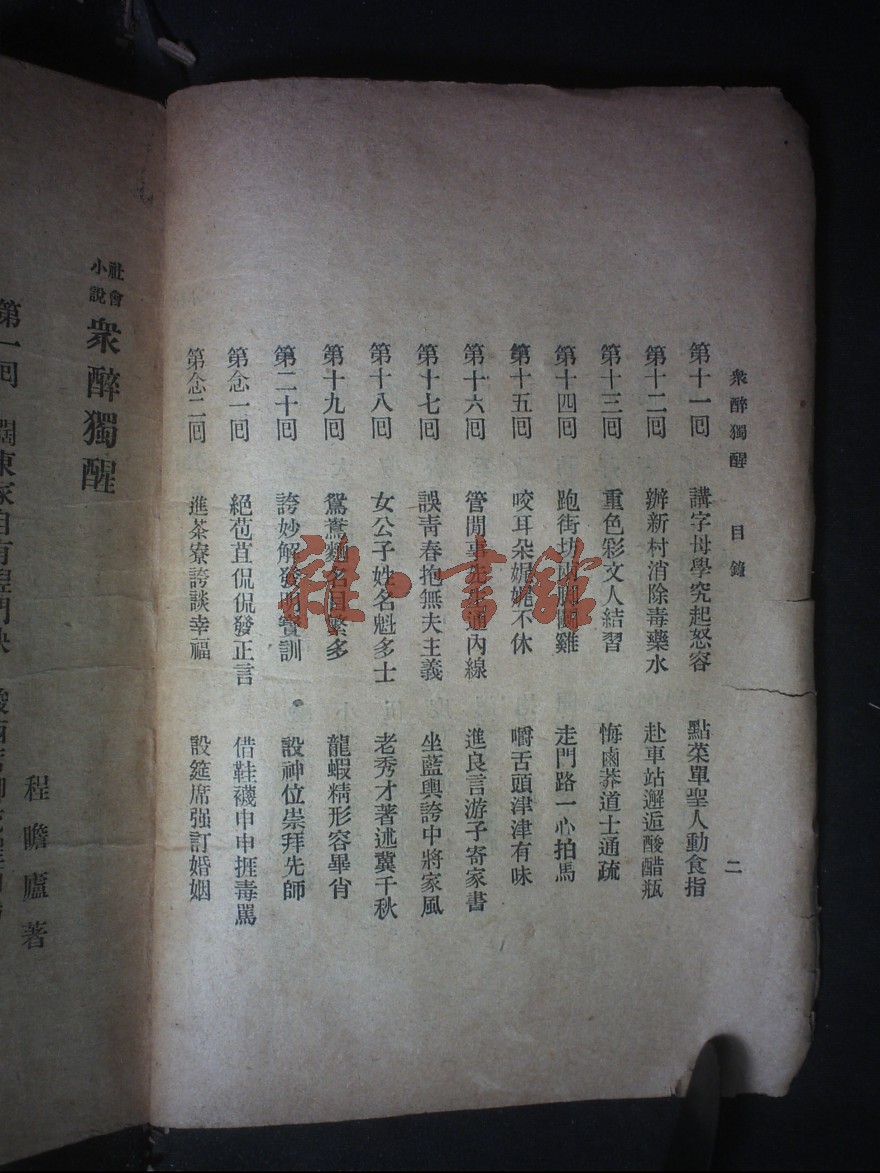 衆醉獨醒 目錄 二
第十一回 講字母學究起怒容 點菜單聖人動食指
第十二回 辦新村消除毒藥水 赴車站邂逅酸醋瓶
第十三回 重色彩文人結習 悔鹵莽道士通疏
第十四回 跑街坊兩脚鬭雞 走門路一心拍馬
第十五回 咬耳朶娓娓不休 嚼舌頭津津有味
第十六回 管閒事先生通內線 進良言游子寄家書
第十七回 誤靑春抱無夫主義 坐藍輿誇中將家風
第十八回 女公子姓名魁多士 老秀才著述冀千秋
第十九回 鴛鴦麵名目繁多 龍蝦精形容畢肖
第二十回 誇妙解發明寶訓 設神位崇拜先師
第念一回 絕苞苴侃侃發正言 借鞋襪申申捱毒駡
第念二回 進茶寮誇談幸福 設筵席强訂婚姻
社會小說 衆醉獨醒
程瞻廬著
第一回 闊東家自有
雜·書館